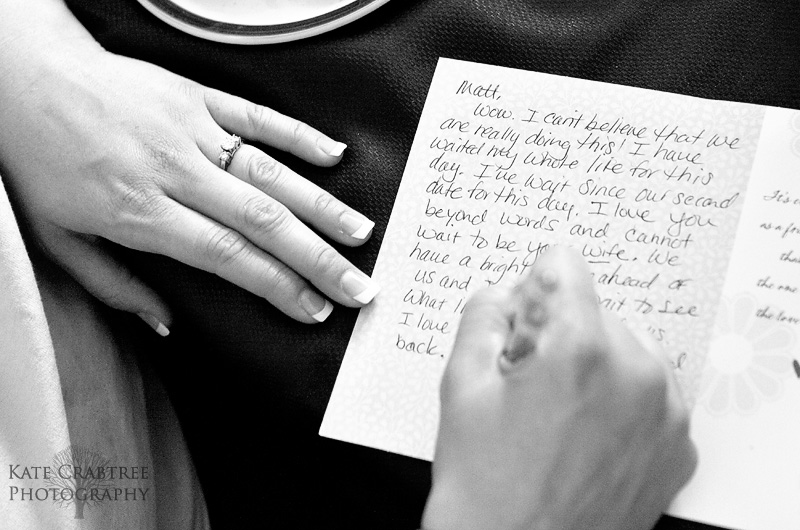 Matt,
Wow. I can't believe that we
are really doing this! I have
waited my whole life for this
day. I've wait since our second
date for this day. I love you
beyond words and cannot
wait to be your wife. We
have a bright ahead of
us and to see
what us.
I love
back.
It's
as a
the
the love
KATE CRABTREE
PHOTOGRAPHY